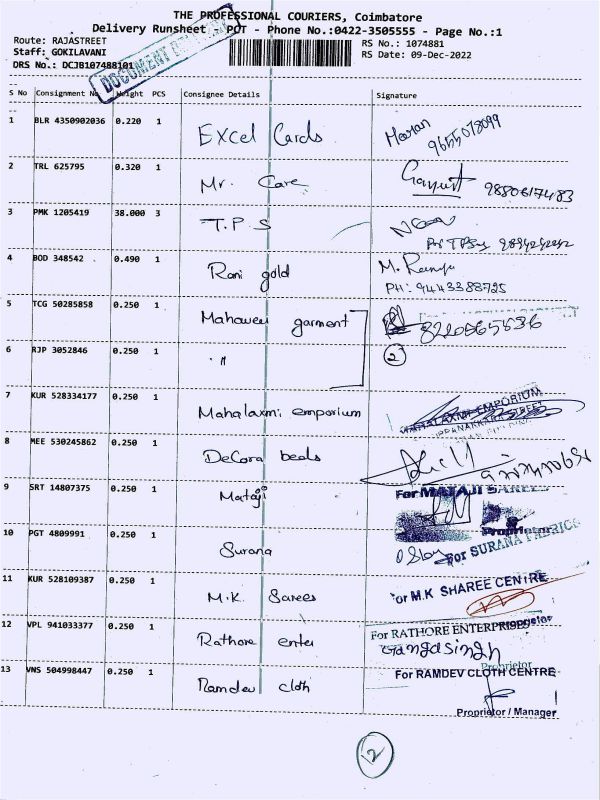 THE PROFESSIONAL COURIERS, Coimbatore
Delivery Runsheet - POT - Phone No.:0422-3505555 - Page No.:1
Route: RAJASTREET
Staff: GOKILAVANI
DRS No.: DCJB107488101
RS No.: 1074881
RS Date: 09-Dec-2022
DOCUMENT DELIVERY
S No Consignment No Weight PCS Consignee Details Signature
1 BLR 4350902036 0.220 1 Excel Cards
2 TRL 625795 0.320 1 Mr. Care
3 PMK 1205419 38.000 3 T.P.S
4 BOD 348542 0.490 1 Rani gold M. Ramya
PH: 9443388725
5 TCG 50285858 0.250 1 Mahaveer garment
6 RJP 3052846 0.250 1 " 2
7 KUR 528334177 0.250 1 Mahalaxmi emporium MAHALAXMI EMPORIUM
8 MEE 530245862 0.250 1 DeCora beds
9 SRT 14807375 0.250 1 Mataji For MATAJI SAREES
Proprietor
10 PGT 4809991 0.250 1 Surana For SURANA FABRICS
11 KUR 528109387 0.250 1 M.K. Sarees For M.K SHAREE CENTRE
Proprietor
12 VPL 941033377 0.250 1 Rathore enter For RATHORE ENTERPRISES
Gangasingh
Proprietor
13 VNS 504998447 0.250 1 Ramdev cloth For RAMDEV CLOTH CENTRE
Proprietor / Manager
12